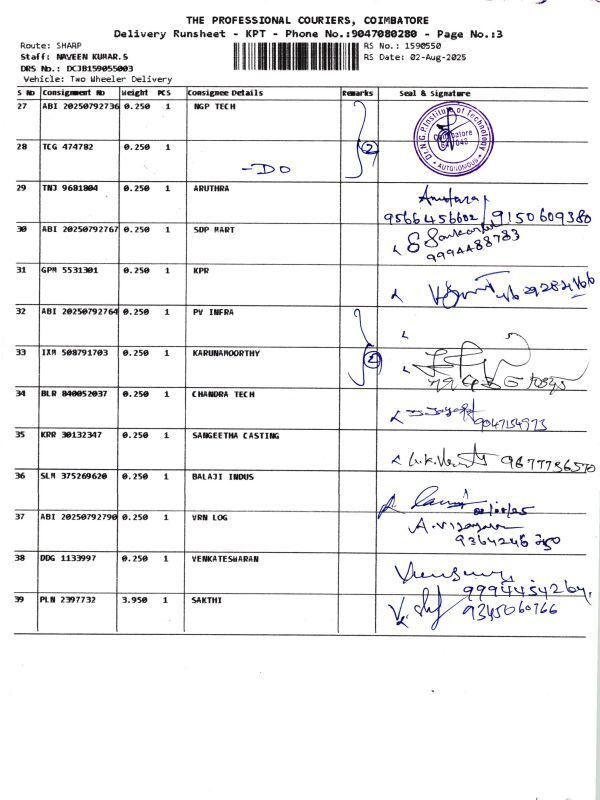 THE PROFESSIONAL COURIERS, COIMBATORE
Delivery Runsheet - KPT - Phone No.:9047080280 - Page No.:3
Route: SHARP
RS No.: 1590550
Staff: NAVEEN KUMAR.S
RS Date: 02-Aug-2025
DRS No.: DCJB159055003
Vehicle: Two Wheeler Delivery
S No Consignment No Weight PCS Consignee Details Remarks Seal & Signature
27 ABI 20250792736 0.250 1 NGP TECH
Dr. N.G.P. Institute of Technology
Coimbatore
641 048
AUTONOMOUS
28 TCG 474782 0.250 1
2
-DO
29 TNJ 9681804 0.250 1 ARUTHRA
9566456602/9150609380
30 ABI 20250792767 0.250 1 SDP MART
9994488783
31 GPM 5531301 0.250 1 KPR
32 ABI 20250792764 0.250 1 PV INFRA
33 IXM 508791703 0.250 1 KARUNAMOORTHY
2
34 BLR 840052037 0.250 1 CHANDRA TECH
9047154973
35 KRR 30132347 0.250 1 SANGEETHA CASTING
9877736570
36 SLM 375269620 0.250 1 BALAJI INDUS
02/08/25
37 ABI 20250792790 0.250 1 VRN LOG
9364246750
38 DDG 1133997 0.250 1 VENKATESHARAN
9994454264
39 PLN 2397732 3.950 1 SAKTHI
9345060766